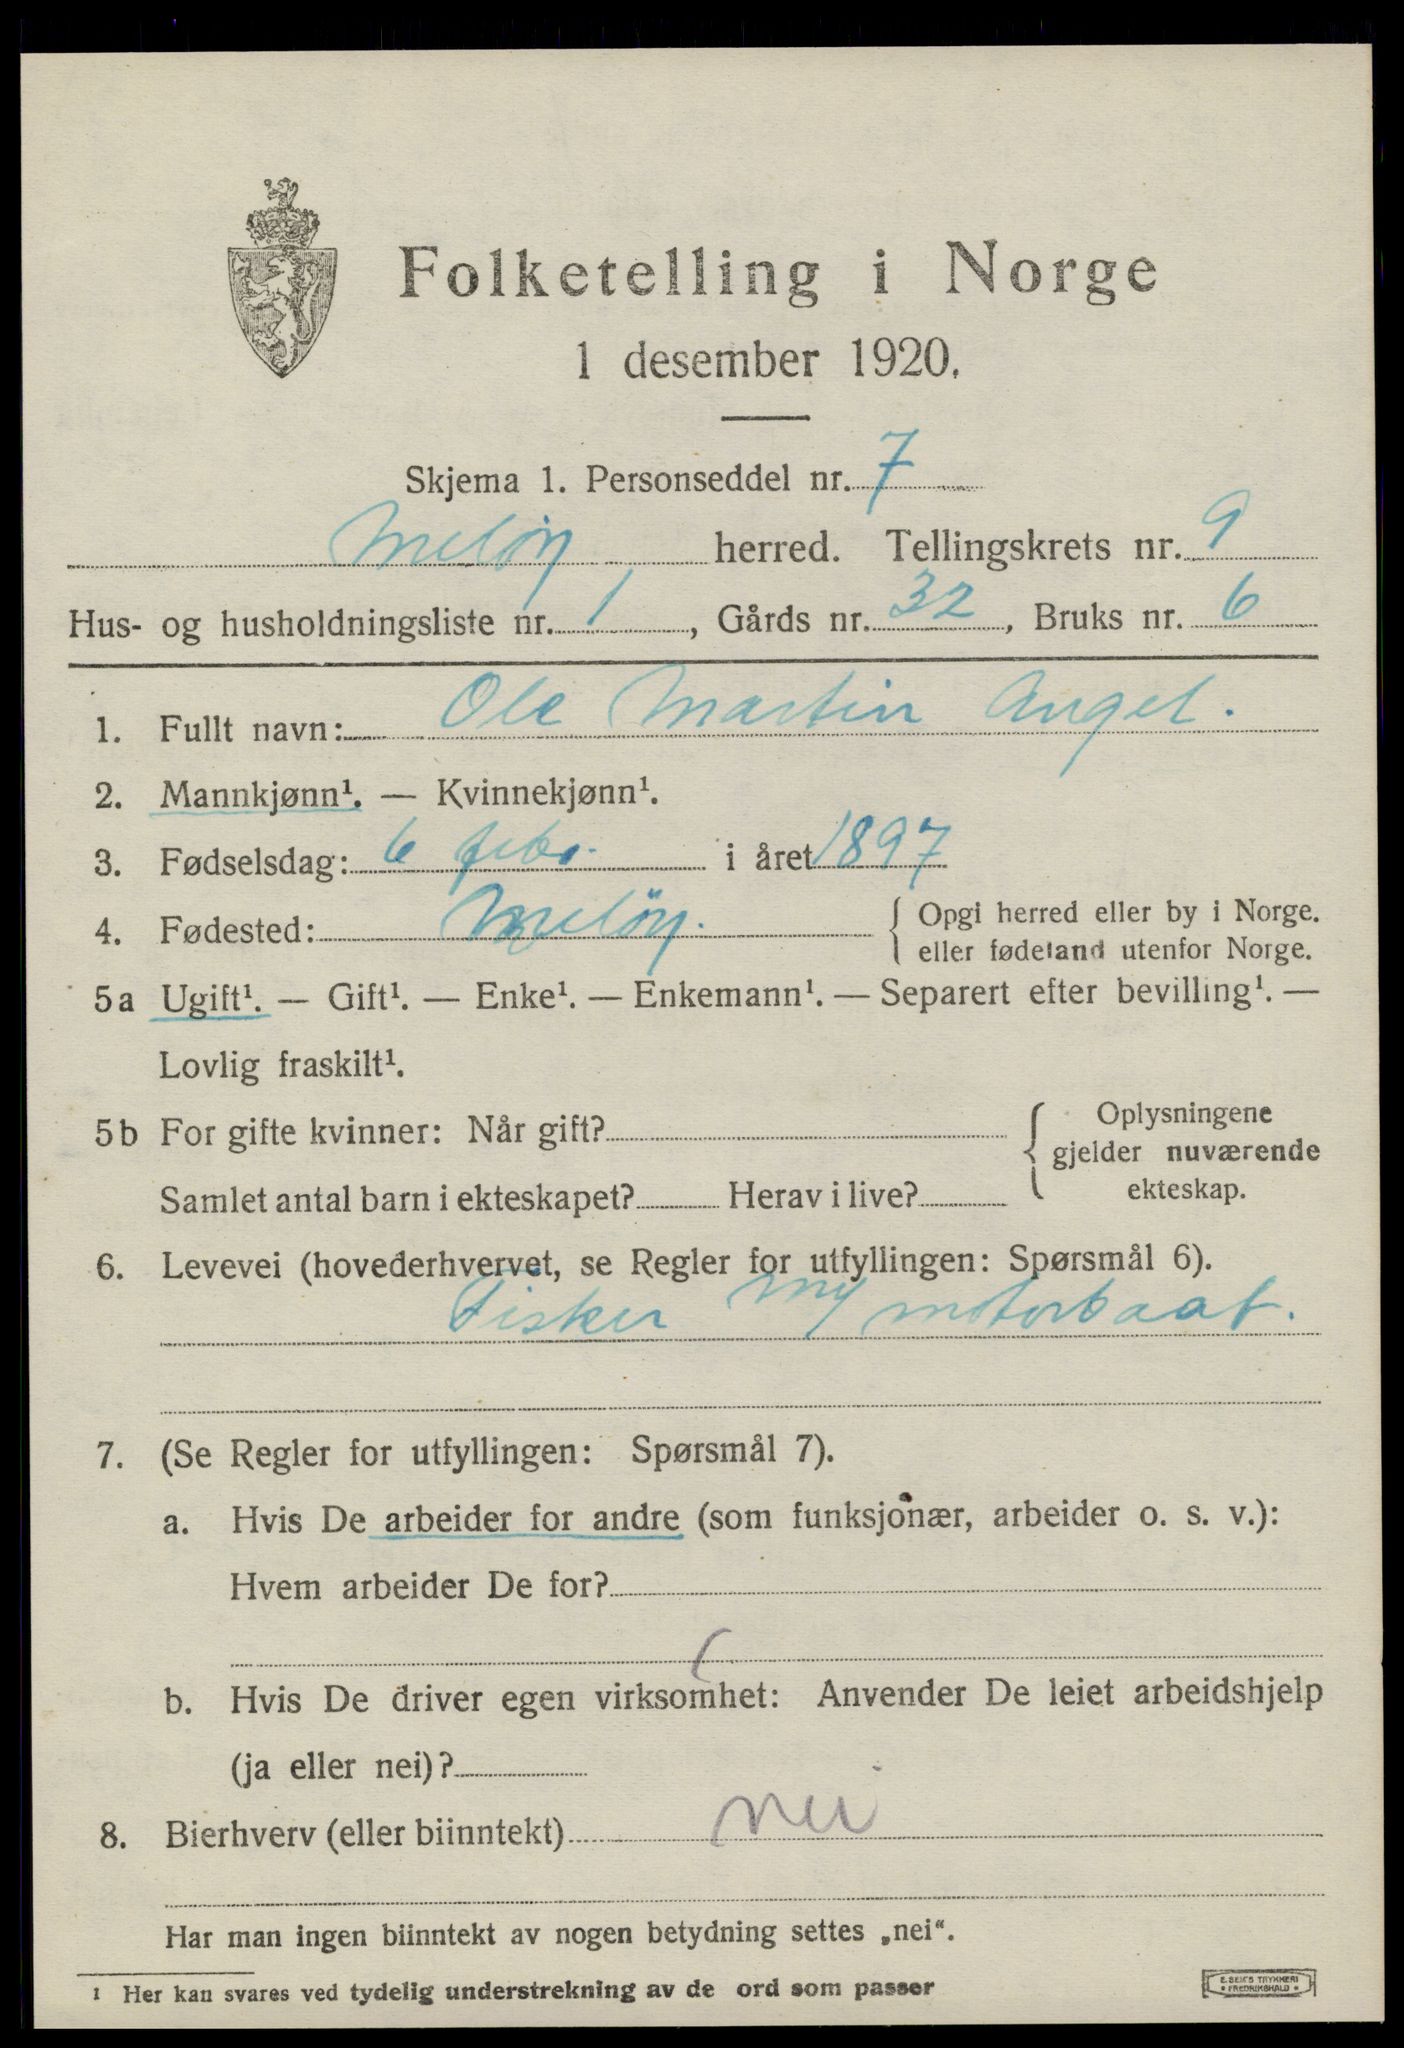 Folketelling i Norge
1 desember 1920.
Skjema 1. Personseddel nr. 7
Meløy herred. Tellingskrets nr. 9
Hus- og husholdningsliste nr. 1, Gårds nr. 32, Bruks nr. 6
1. Fullt navn: Ole Martin Angel.
2. Mannkjønn¹. — Kvinnekjønn¹.
3. Fødselsdag: 6 febr. i året 1897
4. Fødested: Meløy. { Opgi herred eller by i Norge.
eller fødeland utenfor Norge.
5a Ugift¹. — Gift¹. — Enke¹. — Enkemann¹. — Separert efter bevilling¹. —
Lovlig fraskilt¹.
5b For gifte kvinner: Når gift? { Oplysningene
gjelder nuværende
ekteskap.
Samlet antal barn i ekteskapet? Herav i live?
6. Levevei (hovederhvervet, se Regler for utfyllingen: Spørsmål 6).
Fisker m/ motorbaat.
7. (Se Regler for utfyllingen: Spørsmål 7).
a. Hvis De arbeider for andre (som funksjonær, arbeider o. s. v.):
Hvem arbeider De for?
b. Hvis De driver egen virksomhet: Anvender De leiet arbeidshjelp
(ja eller nei)?
8. Bierhverv (eller biinntekt) nei
Har man ingen biinntekt av nogen betydning settes „nei“.
1 Her kan svares ved tydelig understrekning av de ord som passer
E. SEM'S TRYKKERI
• FREDRIKSHALD •